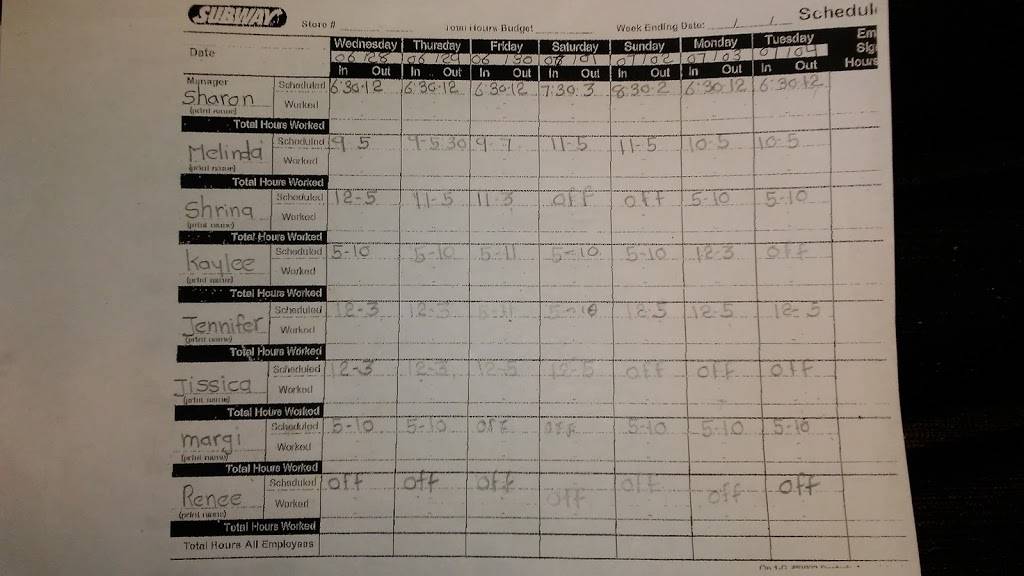 SUBWAY Schedul
Store # Total Hours Budget Week Ending Date: / /
Wednesday Thursday Friday Saturday Sunday Monday Tuesday Em
Date 06 28 06 / 29 06 / 30 07 / 02 07 / 03 07 / 04 Sig
In Out In Out In Out In Out In Out In Out In Out Hours
Manager
Sharon Scheduled 6:30-12 6:30-12 6:30-12 7:30-3 8:30-2 6:30-12 6:30-12
(print name) Worked
Total Hours Worked
Melinda Scheduled 9 5 9-5:30 11-5 11-5 10-5 10-5
(print name) Worked
Total Hours Worked
Shrina Scheduled 12-5 11-5 11-3 off off 5-10 5-10
(print name) Worked
Total Hours Worked
Kaylee Scheduled 5-10 5-10 5-11 5-10 5-10 12-3 off
(print name) Worked
Total Hours Worked
Jennifer Scheduled 12-3 12-3 5-11 5-10 12-5 12-5 12-5
(print name) Worked
Total Hours Worked
Jissica Scheduled 12-3 12-3 12-5 12-5 off off off
(print name) Worked
Total Hours Worked
margi Scheduled 5-10 5-10 off off 5-10 5-10 5-10
(print name) Worked
Total Hours Worked
Renee Scheduled off off off off off off off
(print name) Worked
Total Hours Worked
Total Hours All Employees